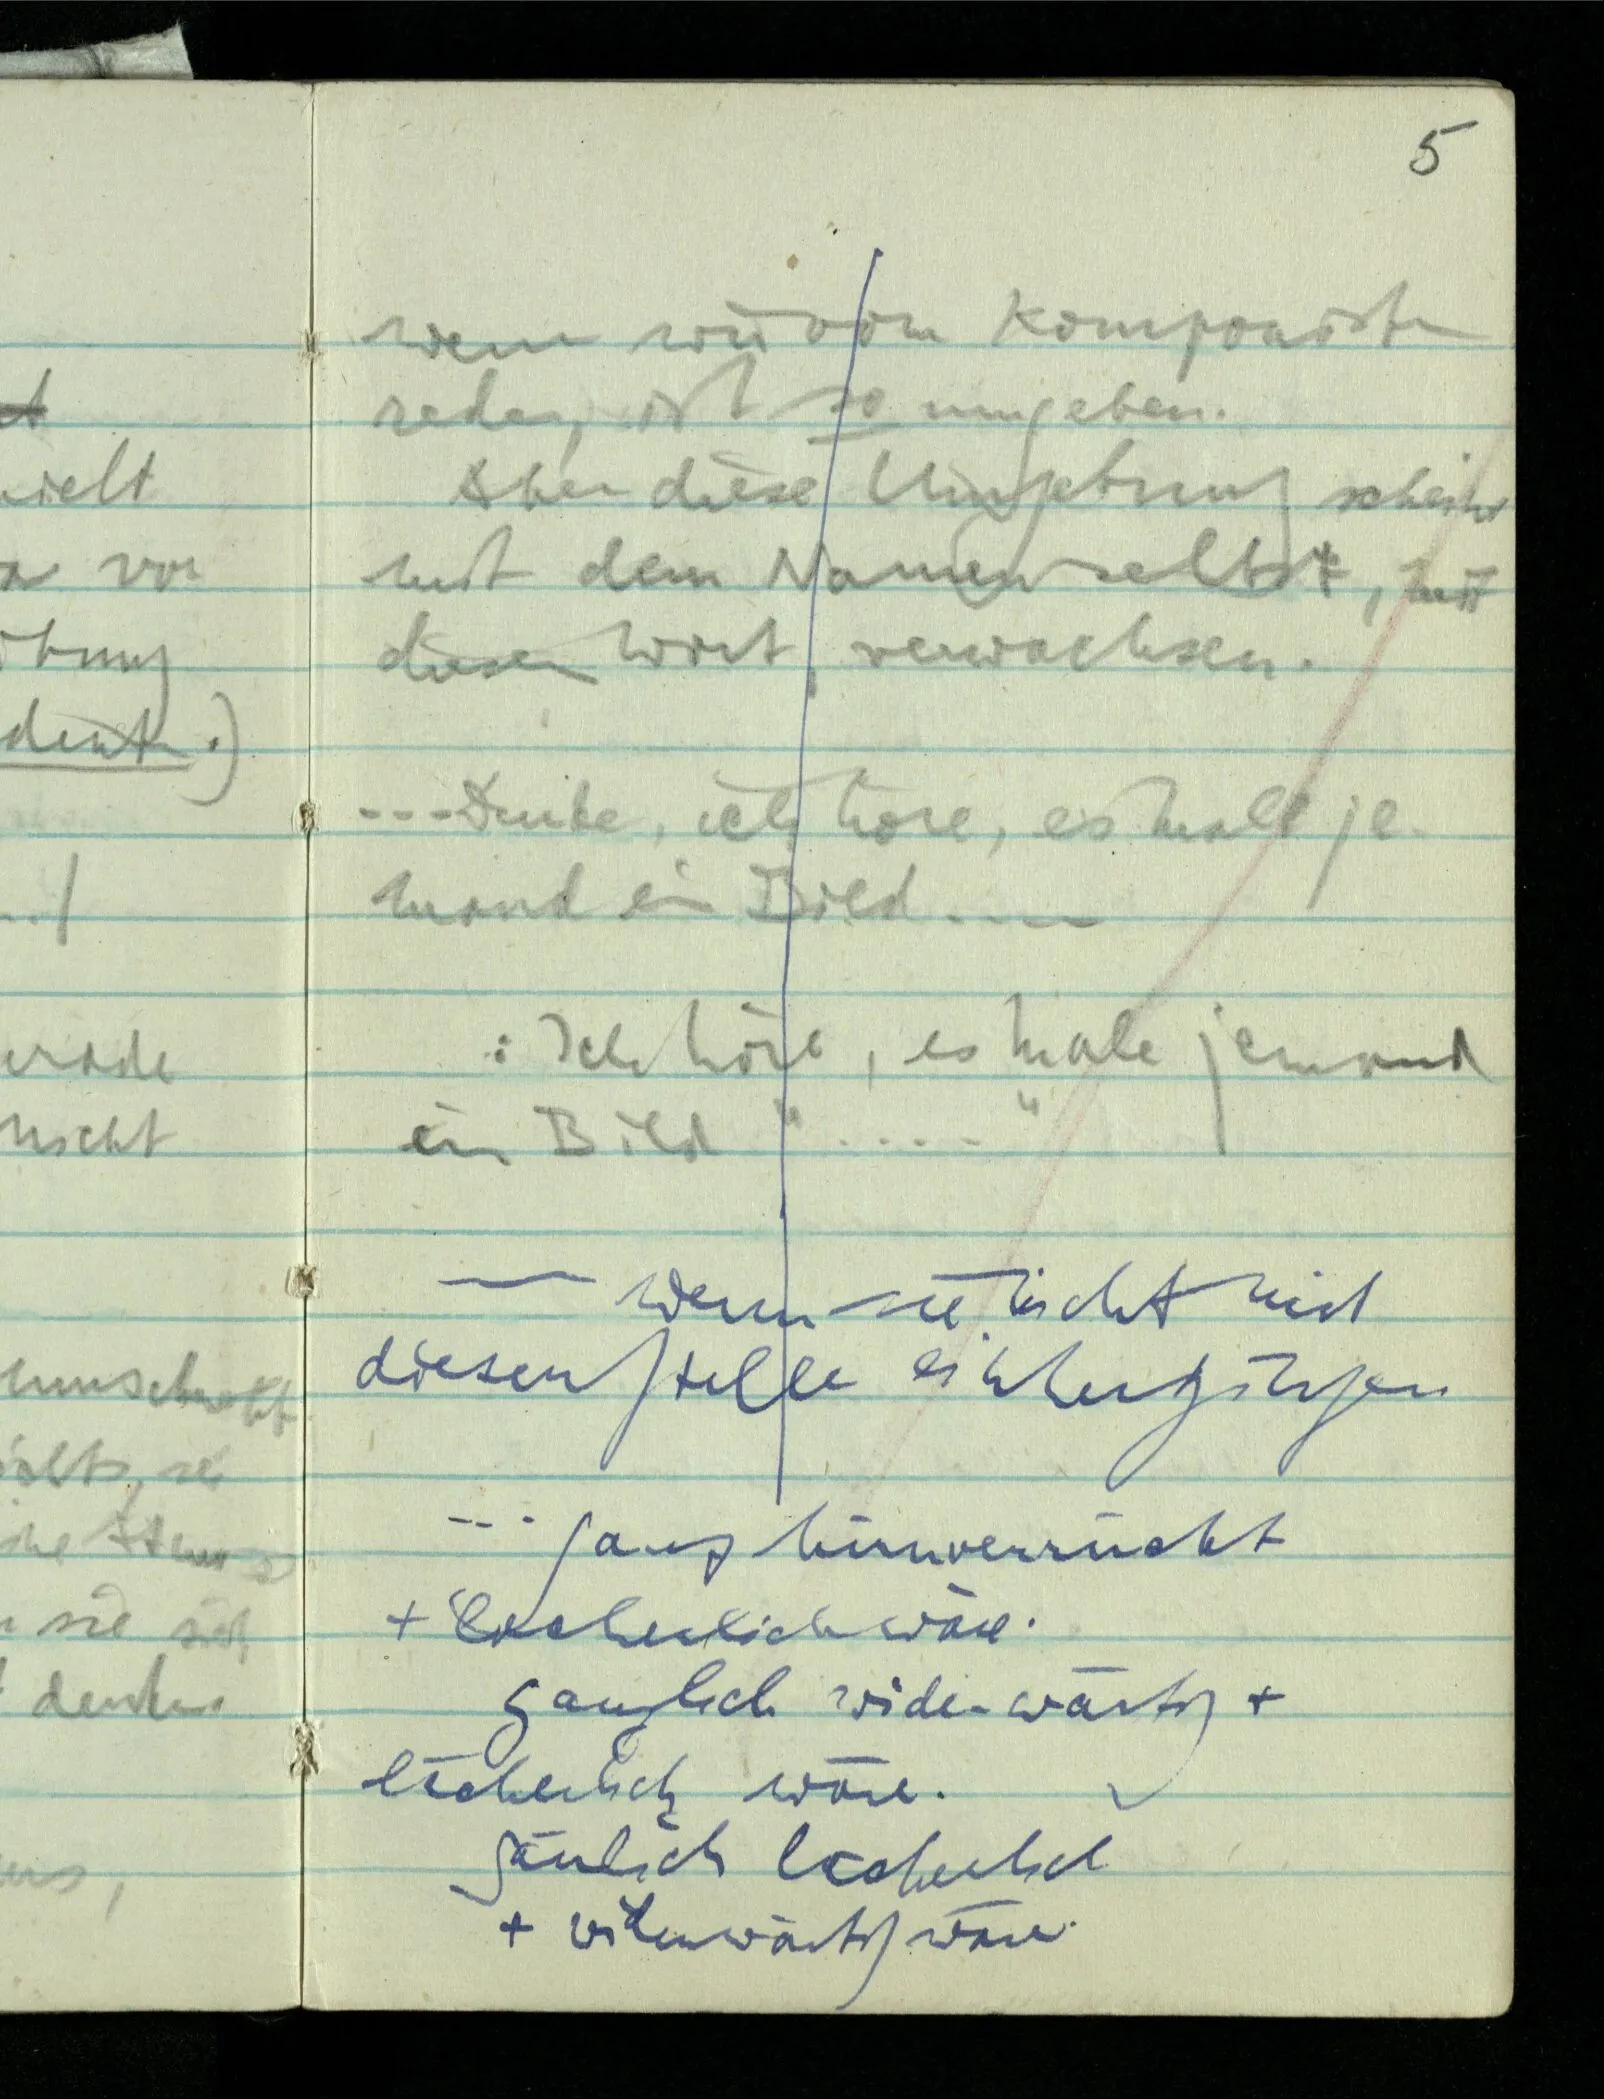 5
wenn wir vom Komponisten
reden, ist so umgeben.
Aber diese Umgebung scheint
mit dem Namen selbst, mit
diesem Wort, verwachsen.
---Denke, ich höre, es male je-
mand ein Bild ----
: Ich höre, es male jemand
ein Bild " ..... "
— wenn sie nicht mit
diesen
--- ganz hirnverrückt
+ lächerlich wäre.
gänzlich widerwärtig +
lächerlich wäre.
gänlich lächerlich
+ widerwärtig wäre.
ielt
vor
denken.)
erade
nicht
sie sich
denken